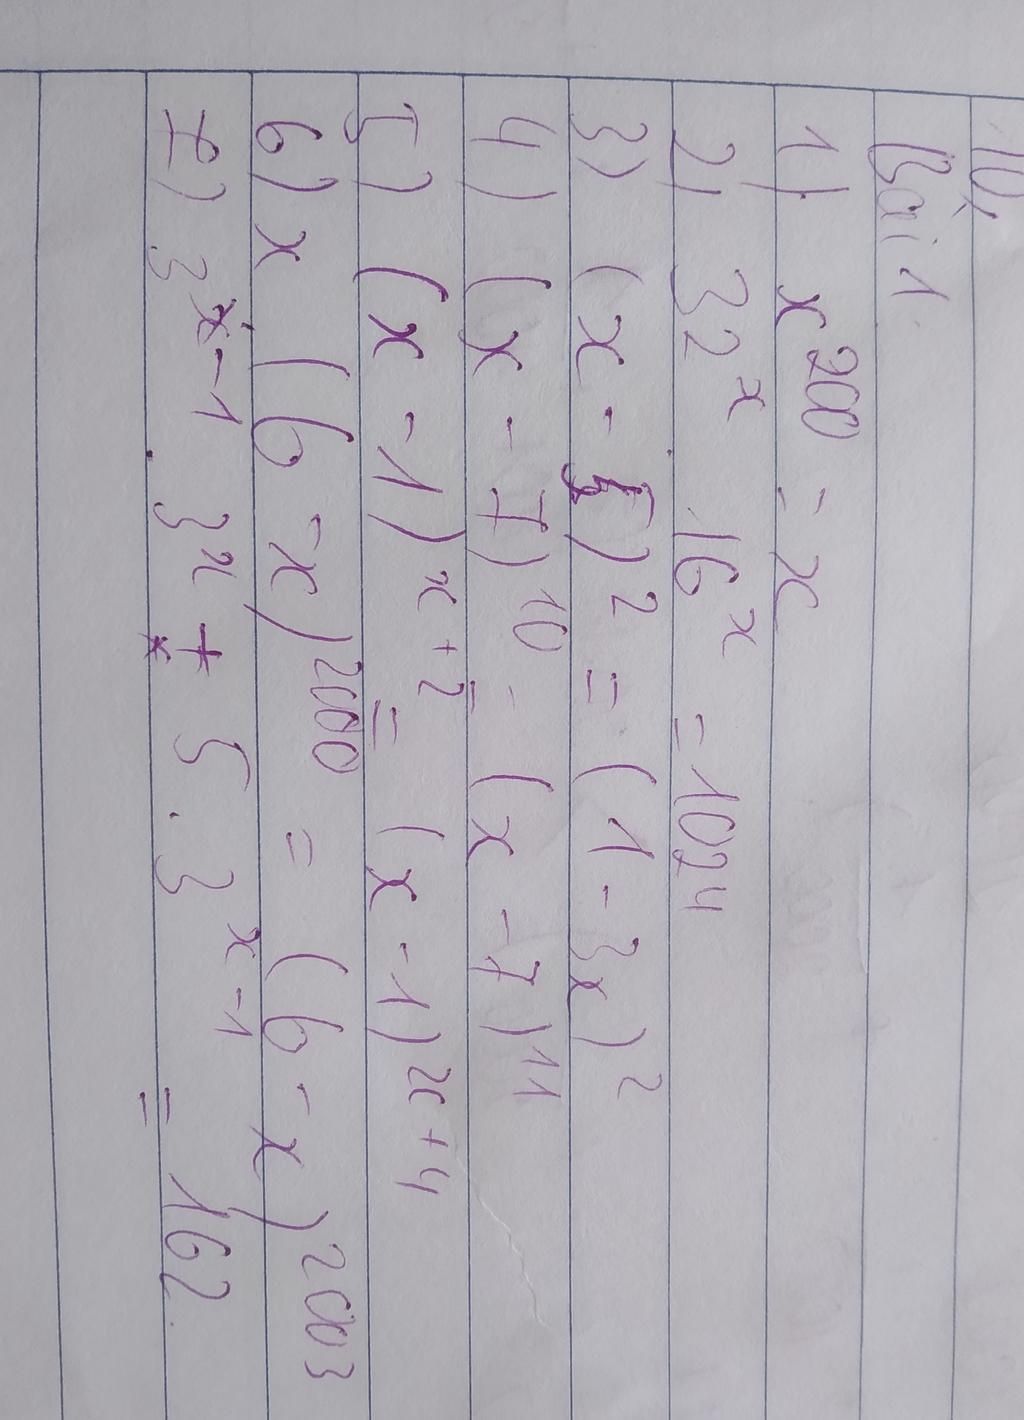 10,
Bài 1.
1) x^200 = x
2) 32^x 16^x = 1024
3) (x - 5)^2 = (1 - 3x)^2
4) (x - 7)^10 = (x - 7)^11
5) (x - 1)^x+2 = (x - 1)^x+4
6) x (6 - x)^2000 = (6 - x)^2003
7) 3^x-1 . 3^x + 5 . 3^x-1 = 162.